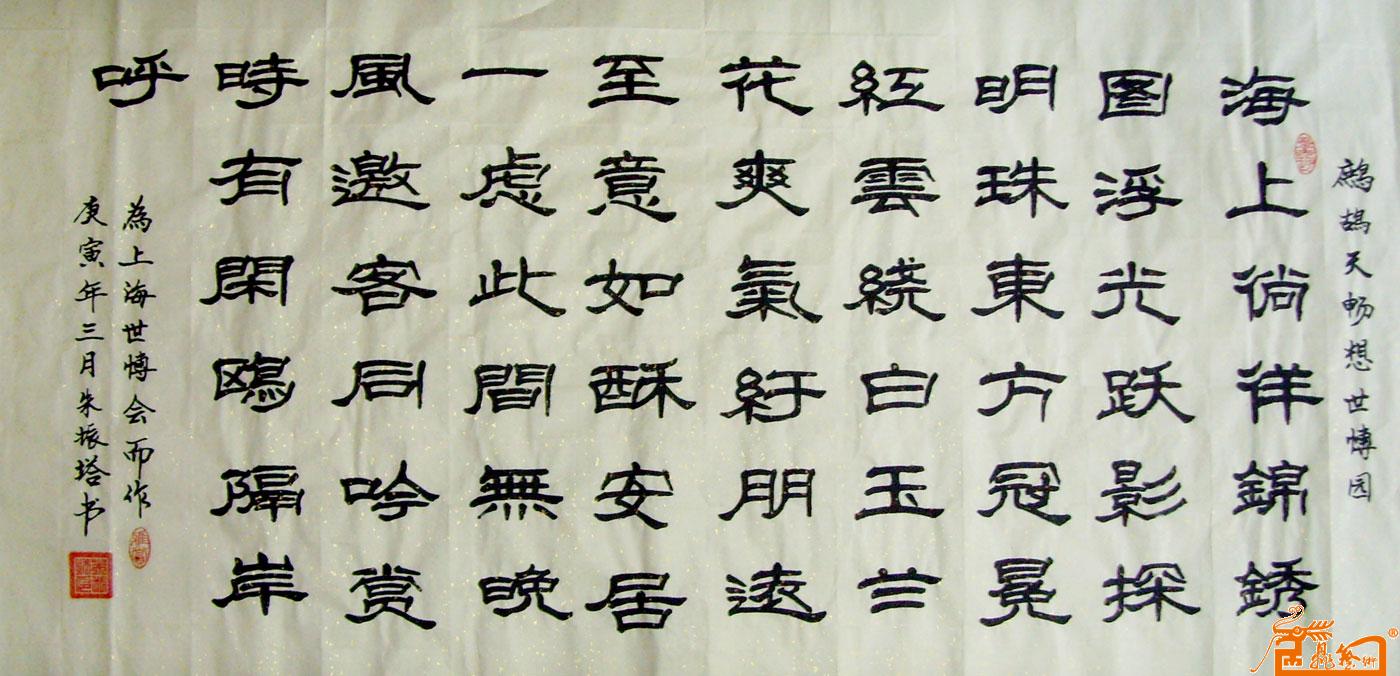 鹧鸪天畅想世博园
海上徜徉錦銹
图浮光跃影探
明珠東方冠冕
紅雲繞白玉兰
花爽氣紆朋遠
至意如酥安居
一虑此間無晚
風邀客同吟赏
時有閑鷗隔岸
呼
為上海世博会而作
庚寅年三月朱振塔书